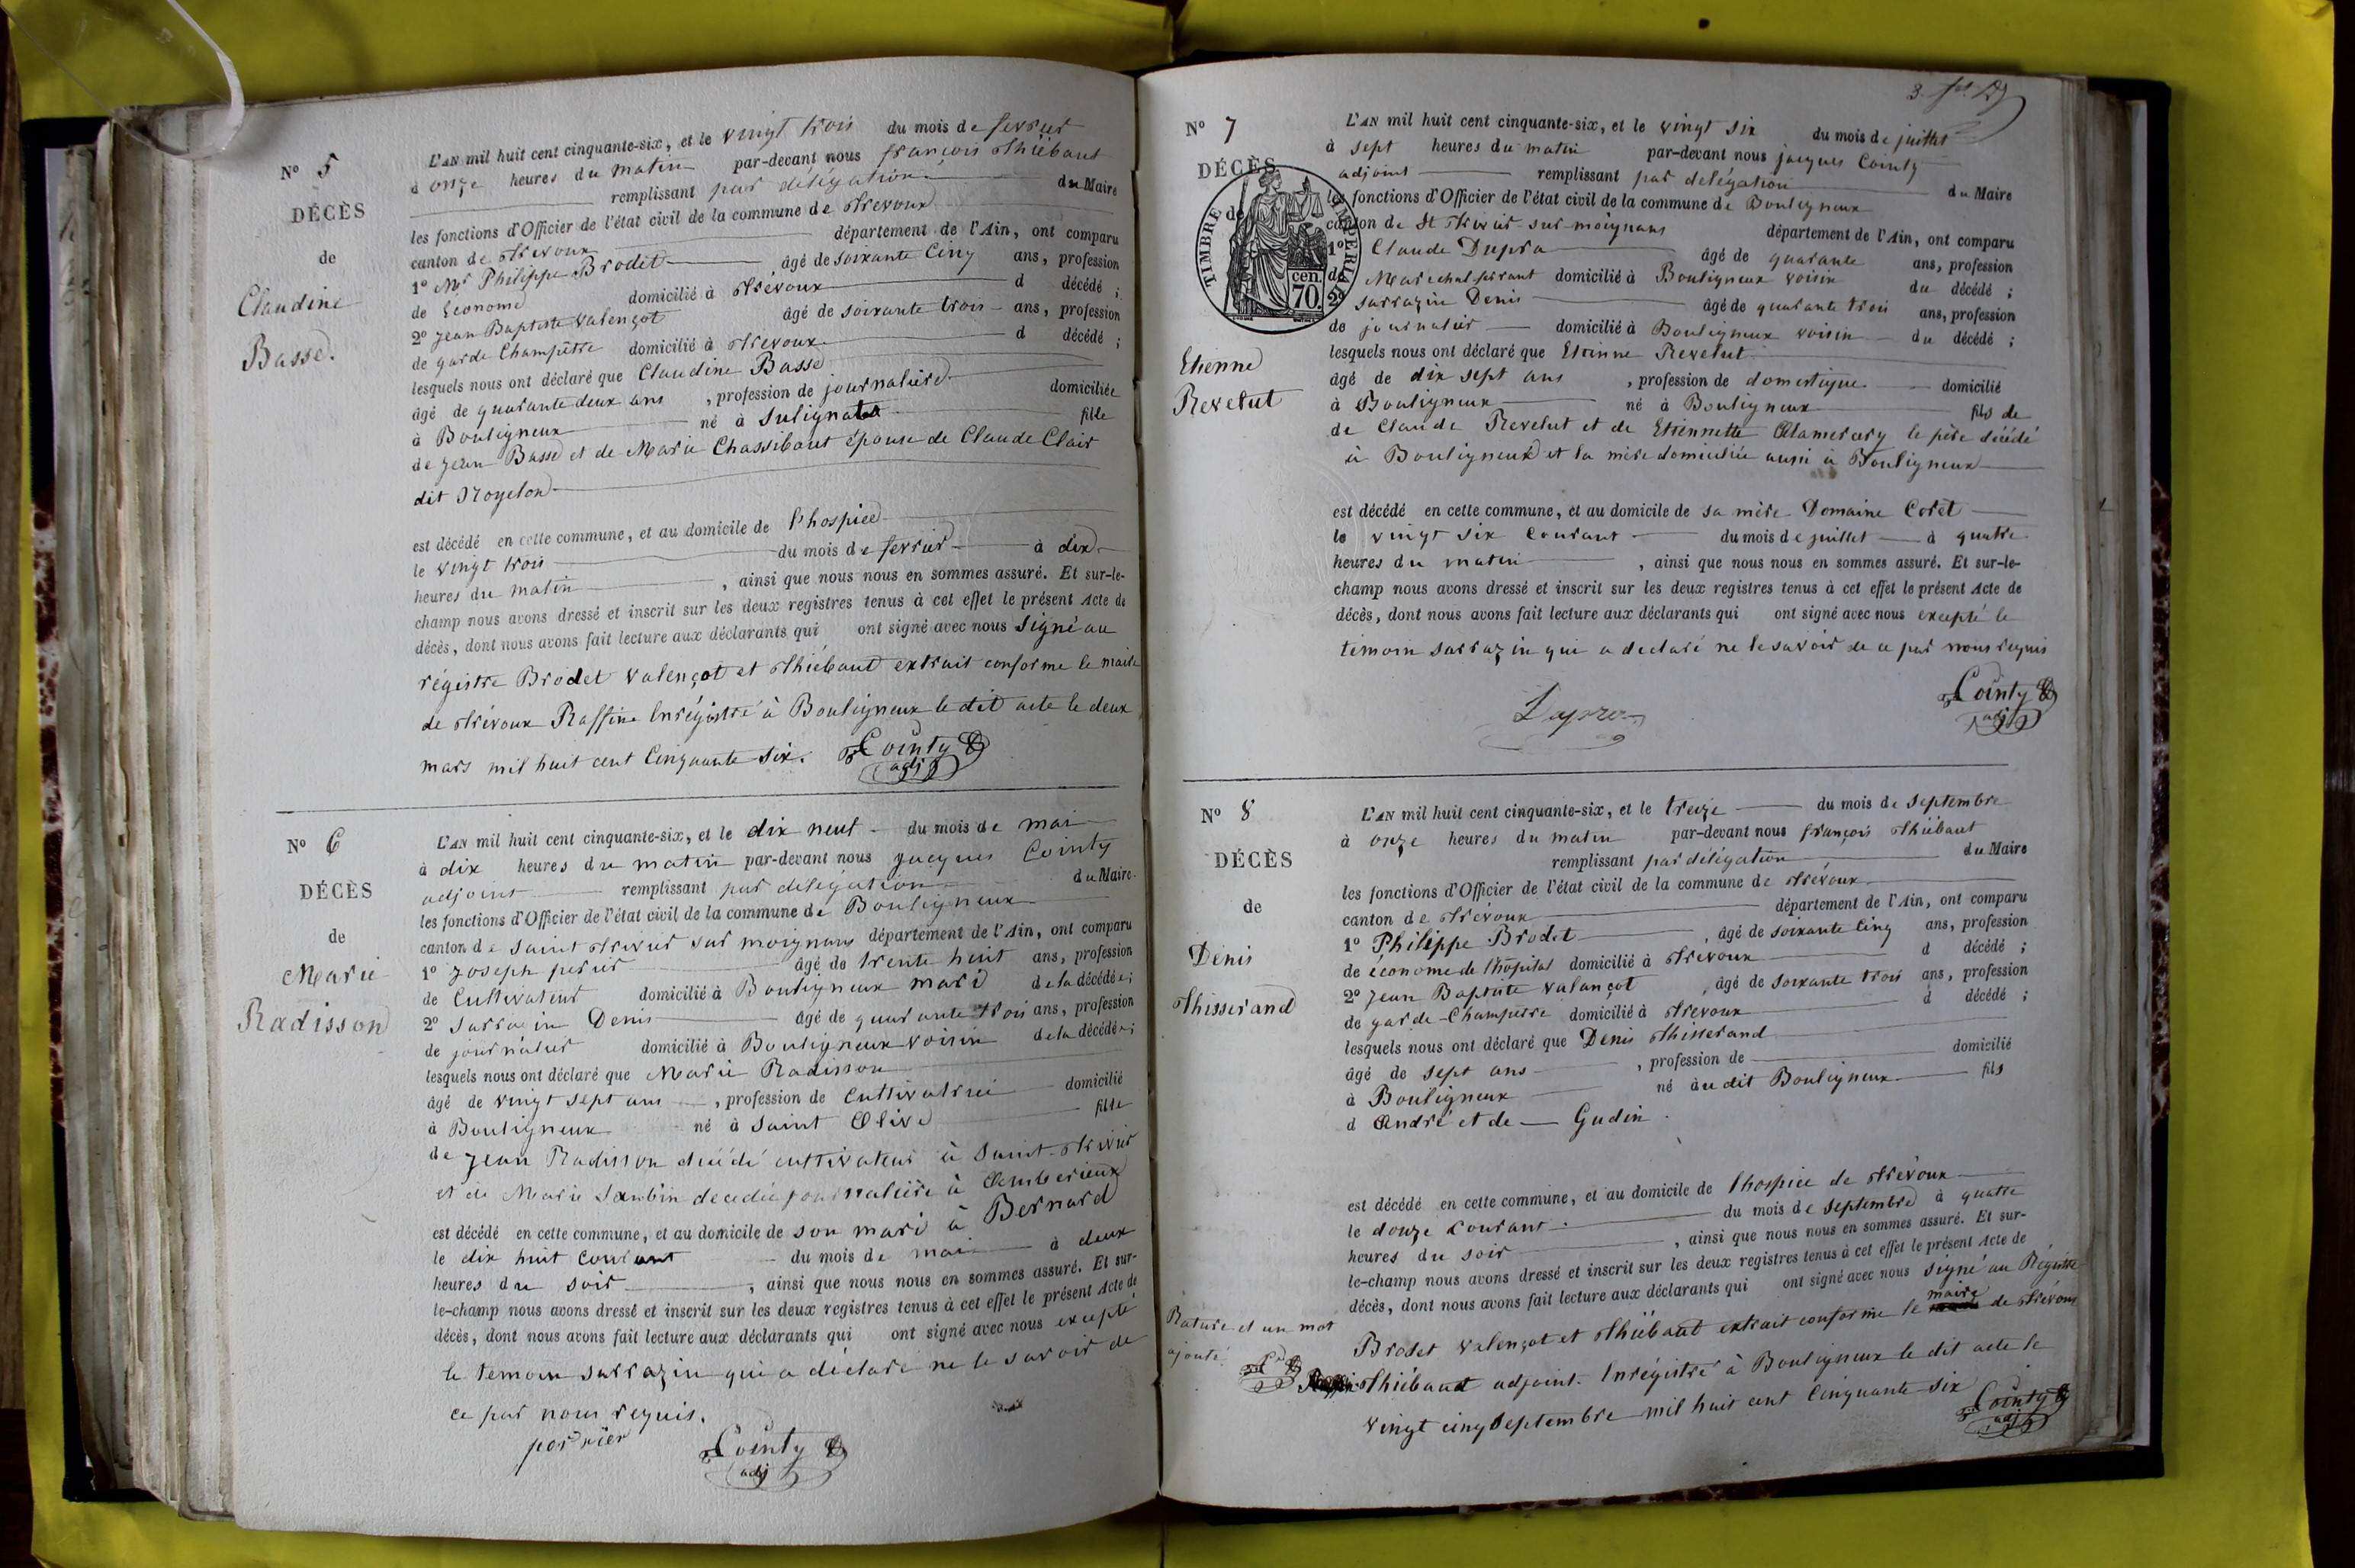 N° 5
DÉCÈS
de
Claudine
Basse.
L'AN mil huit cent cinquante-six, et le vingt trois du mois de fevrier
à onze heures du matin par-devant nous françois Thiébaut
remplissant par délégation du Maire
les fonctions d'Officier de l'état civil de la commune de Trevoux
canton de Trevoux département de l'Ain, ont comparu
1° Mr Philippe Brodet âgé de soixante Cinq ans, profession
de Econome domicilié à Trévoux d décédé ;
2° Jean Baptiste Valençot âgé de soixante trois ans, profession
de garde Champêtre domicilié à Trevoux d décédé ;
lesquels nous ont déclaré que Claudine Basse
âgé de quarante deux ans , profession de journalière domiciliée
à Bouligneux né à Sulignat fille
de Jean Basse et de Marie Chassibout épouse de Claude Clair
dit Noyelon
est décédé en cette commune, et au domicile de l'hospice
le vingt trois du mois de fevrier à dix
heures du matin , ainsi que nous nous en sommes assuré. Et sur-le-
champ nous avons dressé et inscrit sur les deux registres tenus à cet effet le présent Acte de
décès, dont nous avons fait lecture aux déclarants qui ont signé avec nous Signé au
régistre Brodet Valençot et Thiébaud extrait conforme le maire
de Trévoux Raffin Enrégistré à Bouligneux le dit acte le deux
mars mil huit cent Cinquante Six. Cointy
adj
N° 6
DÉCÈS
de
Marie
Radisson
L'AN mil huit cent cinquante-six, et le dix neuf du mois de mai
à dix heures du matin par-devant nous Jacques Cointy
adjoint remplissant par délégation du Maire
les fonctions d'Officier de l'état civil de la commune de Bouligneux
canton de Saint Trivier sur moignans département de l'Ain, ont comparu
1° Joseph perier âgé de trente huit ans, profession
de Cultivateur domicilié à Bouligneux mari de la décédée ;
2° Sarrazin Denis âgé de quarante trois ans, profession
de journalier domicilié à Bouligneux voisin de la décédée ;
lesquels nous ont déclaré que Marie Radisson
âgé de vingt sept ans , profession de Cultivatrice domicilié
à Bouligneux né à Saint Olive fille
de Jean Radisson décédé cultivateur à Saint-Trivier
et de Marie Jambin decedée journalière à Amberieux
est décédé en cette commune, et au domicile de son mari à Bernard
le dix huit Courant du mois de mai à deux
heures du soir , ainsi que nous nous en sommes assuré. Et sur-
le-champ nous avons dressé et inscrit sur les deux registres tenus à cet effet le présent Acte de
décès, dont nous avons fait lecture aux déclarants qui ont signé avec nous excepté
le temoin Sarrazin qui a déclaré ne le savoir de
ce par nous requis.
perrier Cointy
adj
3
N° 7
DÉCÈS
de
TIMBRE IMPERIAL
cen.
70.
Etienne
Revelut
L'AN mil huit cent cinquante-six, et le vingt six du mois de juillet
à sept heures du matin par-devant nous jacques Cointy
adjoint remplissant par delégation du Maire
les fonctions d'Officier de l'état civil de la commune de Bouligneux
canton de St Trivier-sur-moignans département de l'Ain, ont comparu
1° Claude Dupra âgé de quarante ans, profession
de Marechal ferrant domicilié à Bouligneux voisin du décédé ;
2° Sarrazin Denis âgé de quarante trois ans, profession
de journalier domicilié à Bouligneux voisin du décédé ;
lesquels nous ont déclaré que Etienne Revelut
âgé de dix sept ans , profession de domestique domicilié
à Bouligneux né à Bouligneux fils de
de Claude Revelut et de Etiennette Alamercery le père décédé
à Bouligneux et la mère domiciliée aussi à Bouligneux
est décédé en cette commune, et au domicile de sa mère Domaine Coret
le vingt six Courant du mois de juillet à quatre
heures du matin , ainsi que nous nous en sommes assuré. Et sur-le-
champ nous avons dressé et inscrit sur les deux registres tenus à cet effet le présent Acte de
décès, dont nous avons fait lecture aux déclarants qui ont signé avec nous excepté le
temoin Sarrazin qui a declaré ne le savoir de ce par nous requis
Dupra Cointy
adj
N° 8
DÉCÈS
de
Denis
Thisserand
L'AN mil huit cent cinquante-six, et le treize du mois de Septembre
à onze heures du matin par-devant nous françois Thiébaut
remplissant par délégation du Maire
les fonctions d'Officier de l'état civil de la commune de Trévoux
canton de Trévoux département de l'Ain, ont comparu
1° Philippe Brodet , âgé de soixante Cinq ans, profession
de économe de l'hôpital domicilié à Trevoux d décédé ;
2° Jean Baptiste Valançot , âgé de soixante trois ans, profession
de garde-Champetre domicilié à Trevoux d décédé ;
lesquels nous ont déclaré que Denis Thisserand
âgé de sept ans , profession de domicilié
à Bouligneux né au dit Bouligneux fils
d André et de — Gudin .
est décédé en cette commune, et au domicile de l'hospice de Trévoux
le douze Courant du mois de Septembre à quatre
heures du soir , ainsi que nous nous en sommes assuré. Et sur-
le-champ nous avons dressé et inscrit sur les deux registres tenus à cet effet le présent Acte de
décès, dont nous avons fait lecture aux déclarants qui ont signé avec nous Signé au Régistre
Brodet Valençot et Thiébaut extrait conforme le maire de Trévoux
Thiébaud adjoint. Enrégistré à Bouligneux le dit acte le
vingt cinq Septembre mil huit cent Cinquante Six Cointy
adj
Rature et un mot
ajouté.